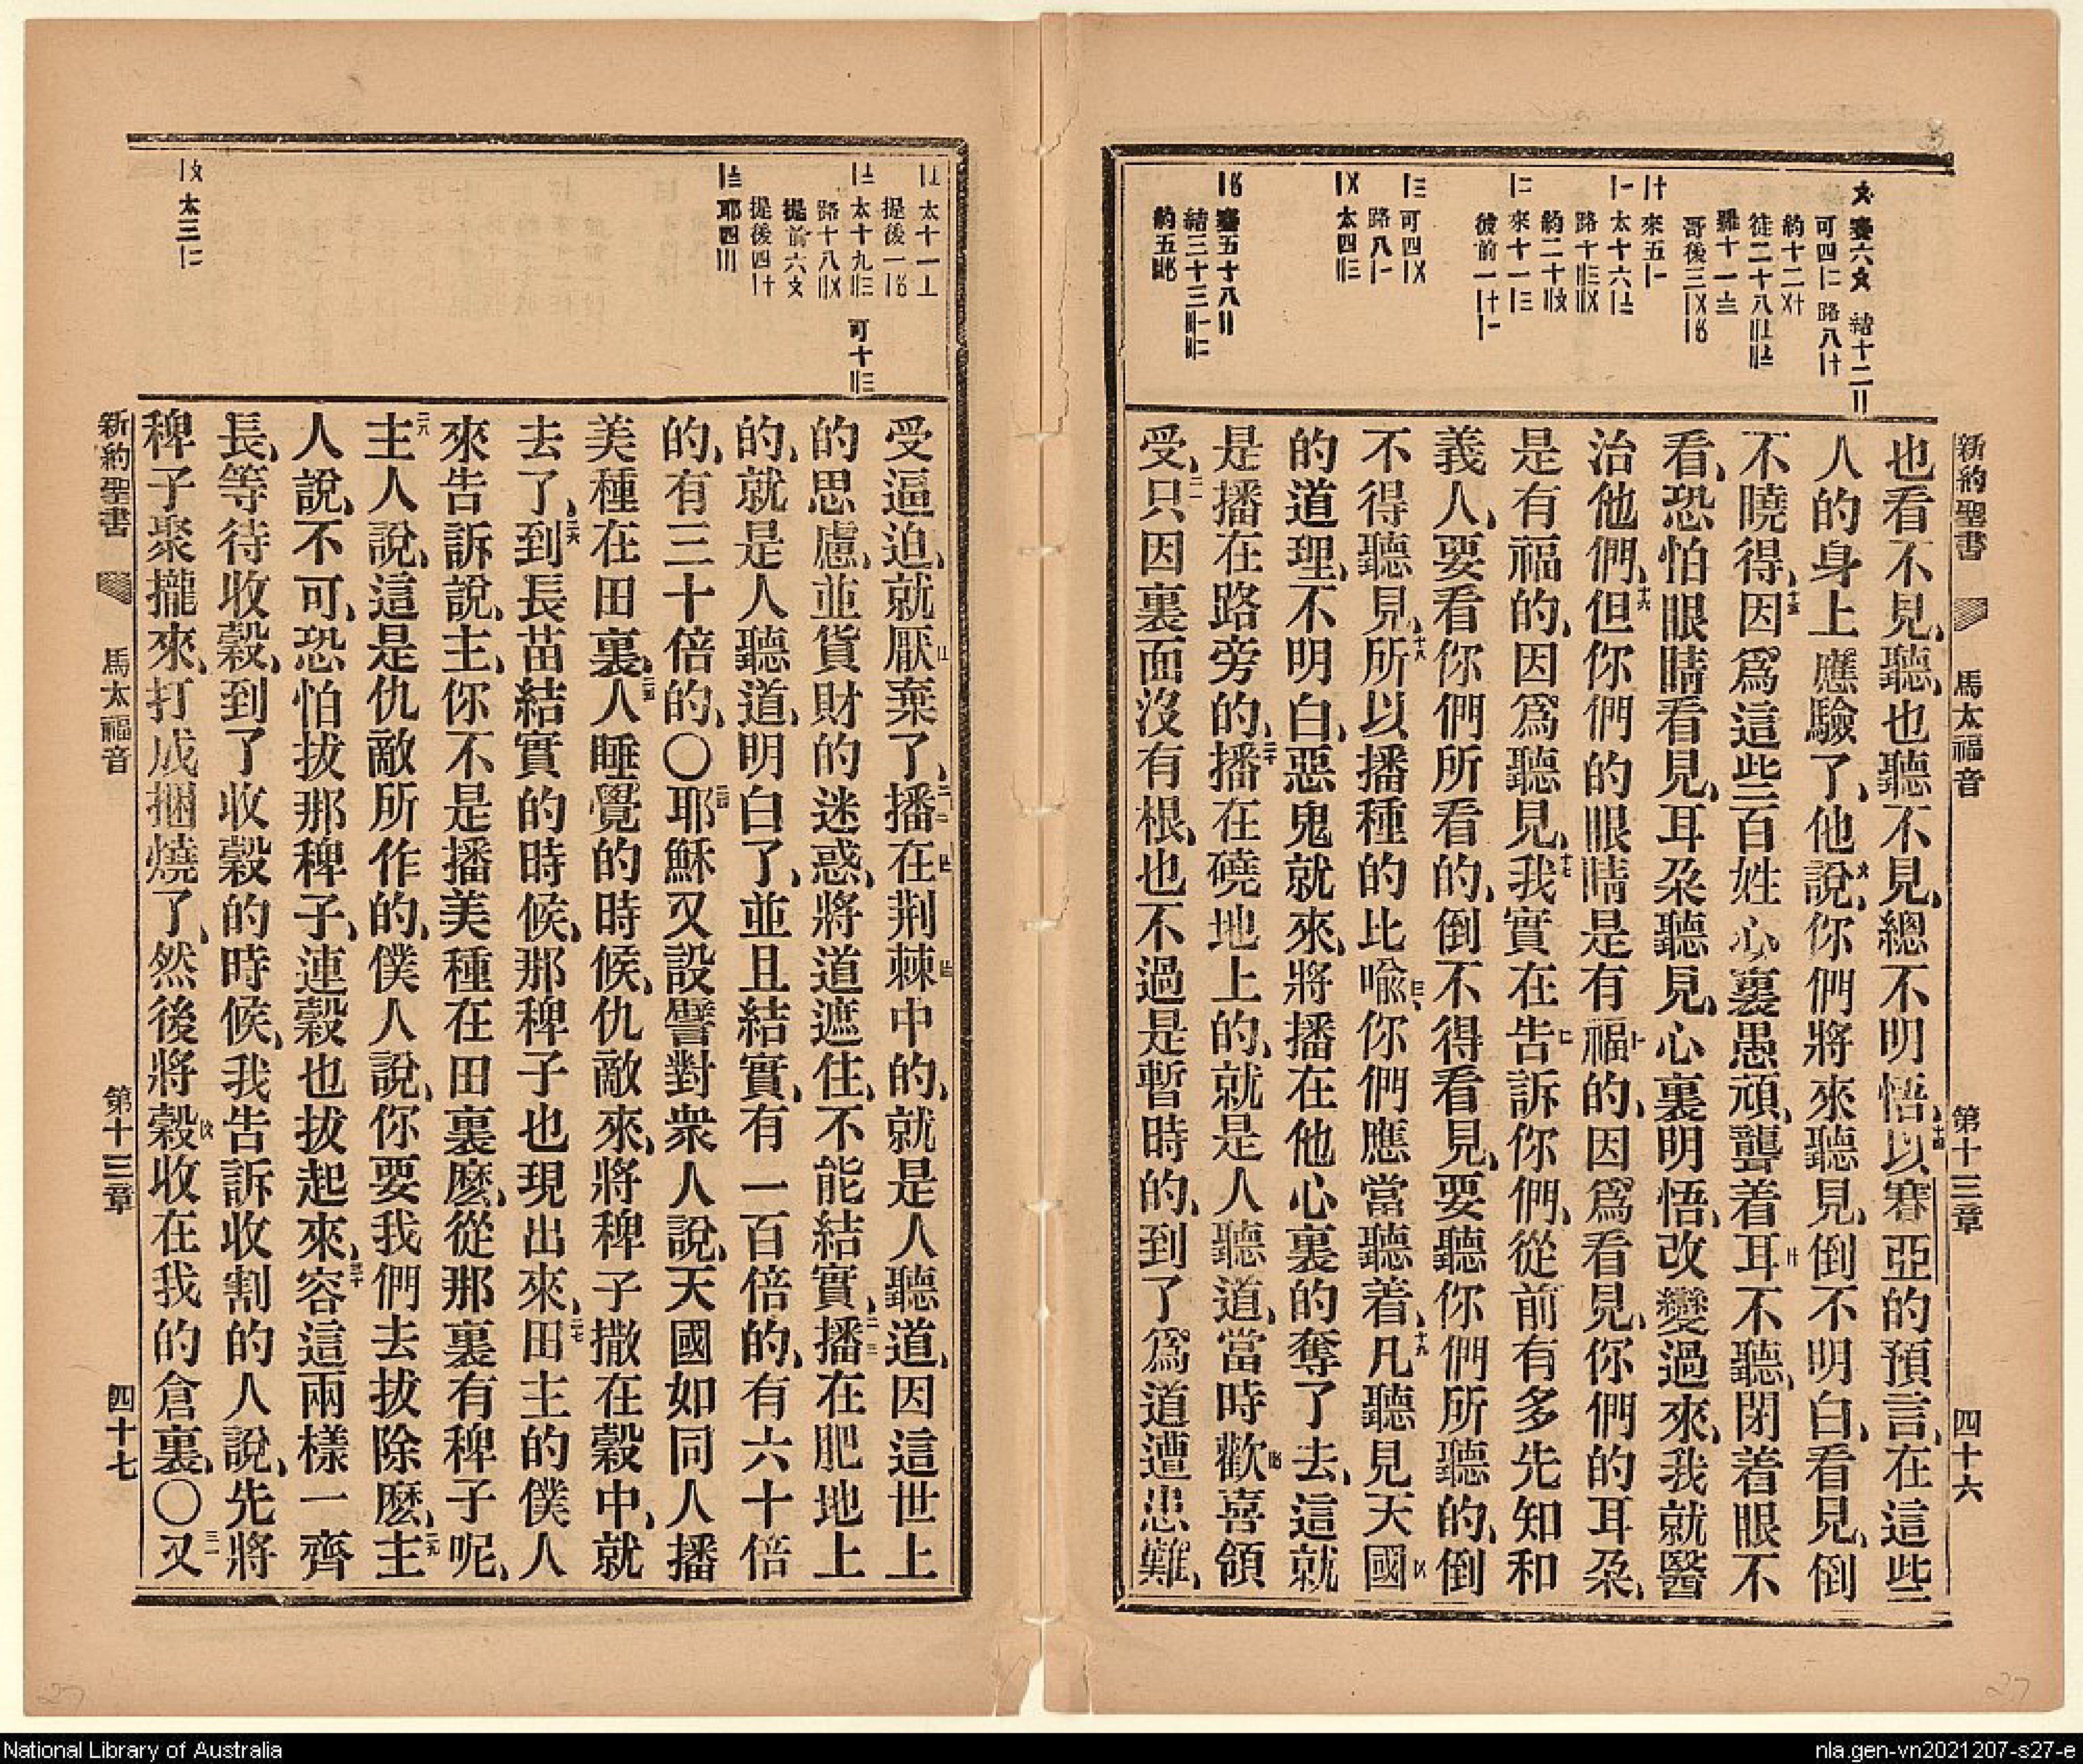 新約聖書 馬太福音 第十三章 四十六
也看不見、聽、也聽不見、總不明悟、十四以賽亞的預言、在這些
人的身上應驗了、他說、你們將來聽見、倒不明白、看見、倒
不曉得、十五因爲這些百姓心裏愚頑、聾着耳不聽、閉着眼不
看、恐怕眼睛看見、耳朶聽見、心裏明悟、改變過來、我就醫
治他們、十六但你們的眼睛是有福的、因爲看見、你們的耳朶、
是有福的、因爲聽見、十七我實在告訴你們、從前有多先知和
義人、要看你們所看的、倒不得看見、要聽你們所聽的、倒
不得聽見、十八所以播種的比喩、你們應當聽着、十九凡聽見天國
的道理、不明白、惡鬼就來、將播在他心裏的奪了去、這就
是播在路旁的、二十播在磽地上的、就是人聽道、當時歡喜領
受、二一只因裏面沒有根、也不過是暫時的、到了爲道遭患難、
受逼迫、就厭棄了、二二播在荆棘中的、就是人聽道、因這世上
的思慮、並貨財的迷惑、將道遮住、不能結實、二三播在肥地上
的、就是人聽道、明白了、並且結實、有一百倍的、有六十倍
的、有三十倍的、〇二四耶穌又設譬對衆人說、天國如同人播
美種在田裏、二五人睡覺的時候、仇敵來、將稗子撒在穀中、就
去了、二六到長苗結實的時候、那稗子也現出來、二七田主的僕人
來告訴說、主、你不是播美種在田裏麽、從那裏有稗子呢、
二八主人說、這是仇敵所作的、僕人說、你要我們去拔除麽、二九主
人說、不可、恐怕拔那稗子、連穀也拔起來、三十容這兩樣一齊
長、等待收穀、到了收穀的時候、我告訴收割的人說、先將
稗子聚攏來、打成捆燒了、然後將穀收在我的倉裏、〇三一又
新約聖書 馬太福音 第十三章 四十七
National Library of Australia
nla.gen-vn2021207-s27-e